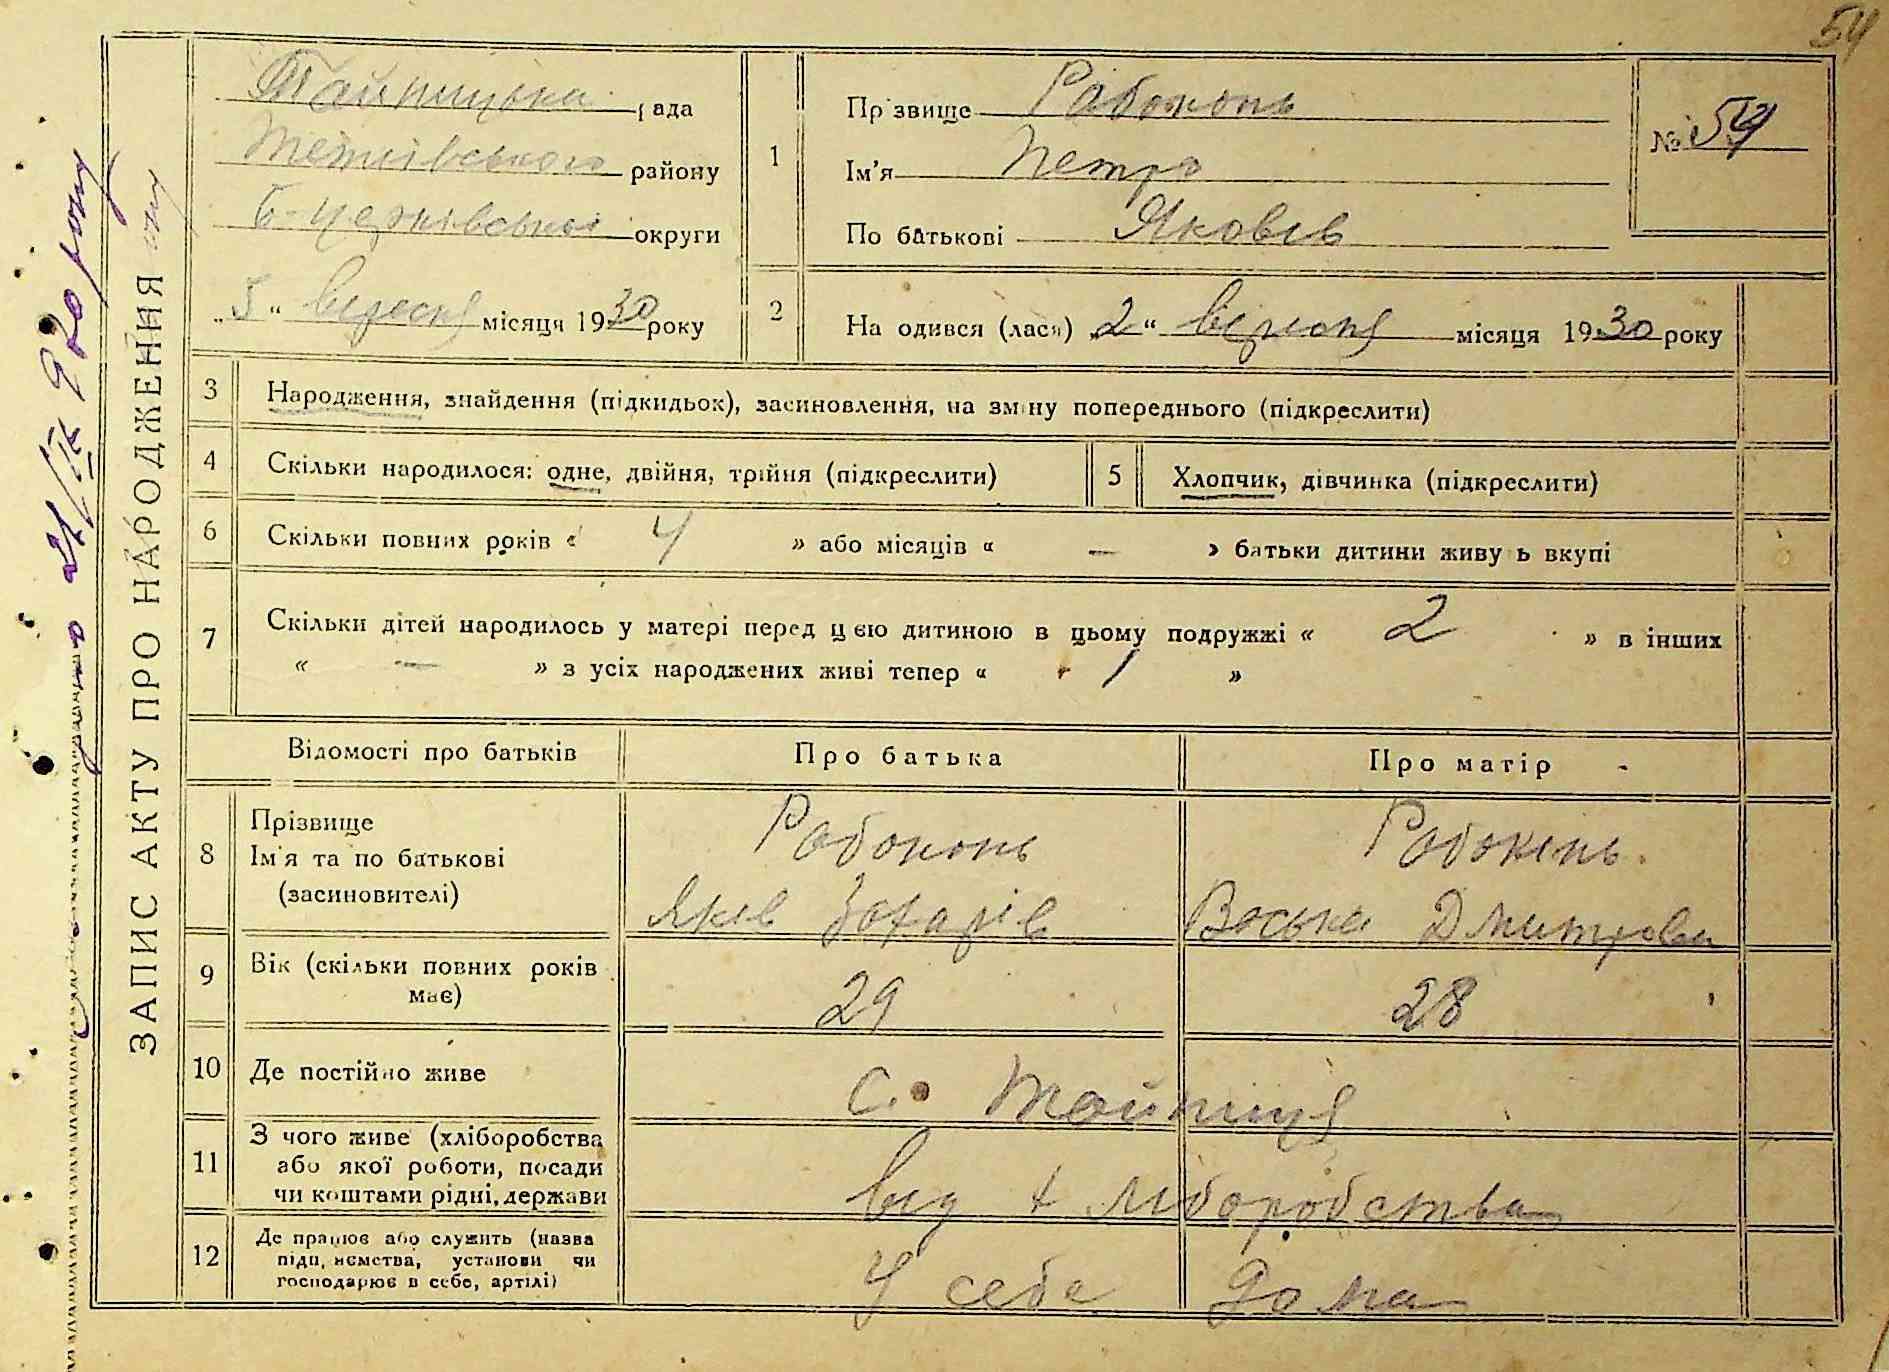 54
ЗАПИС АКТУ ПРО НАРОДЖЕННЯ
Тайницька рада
Тетіївського району
Б-Церківської округи
„5“ вересня місяця 1930 року
1
Прізвище Рабоконь
Ім'я Петро
По батькові Яковів
№ 54
2
На одився (лася) „2“ вересня місяця 1930 року
3 Народження, знайдення (підкидьок), засиновлення, на зміну попереднього (підкреслити)
4 Скільки народилося: одне, двійня, трійня (підкреслити) 5 Хлопчик, дівчинка (підкреслити)
6 Скільки повних років « 4 » або місяців « — » батьки дитини живу ь вкупі
7 Скільки дітей народилось у матері перед цією дитиною в цьому подружжі « 2 » в інших
« — » з усіх народжених живі тепер « 1 »
Відомості про батьків Про батька Про матір
8 Прізвище Рабоконь Рабокінь
Ім'я та по батькові
(засиновителі) Яків Захарів Васька Дмитрова
9 Вік (скільки повних років
має) 29 28
10 Де постійно живе с. Тайниця
11 З чого живе (хліборобства
або якої роботи, посади
чи коштами рідні, держави від хліборобства
12 Де працює або служить (назва
підприємства, установи чи
господарює в себе, артілі) У себе дома